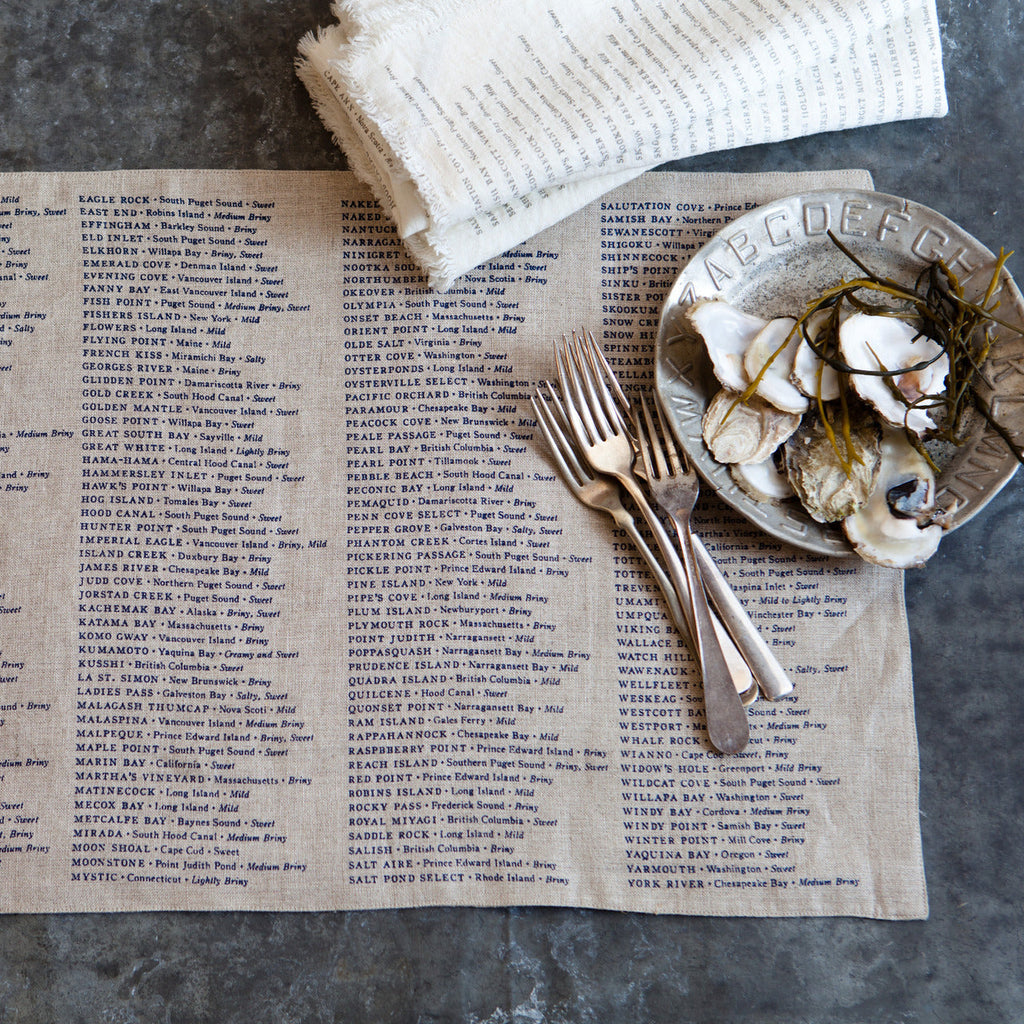 Mild
Briny, Sweet
Sweet
Briny
Briny
Medium Briny
Salty
Medium Briny
Briny
Medium Briny
Sweet
Sweet
Briny
Medium Briny
EAGLE ROCK • South Puget Sound • Sweet
EAST END • Robins Island • Medium Briny
EFFINGHAM • Barkley Sound • Briny
ELD INLET • South Puget Sound • Sweet
ELKHORN • Willapa Bay • Briny, Sweet
EMERALD COVE • Denman Island • Sweet
EVENING COVE • Vancouver Island • Sweet
FANNY BAY • East Vancouver Island • Sweet
FISH POINT • Puget Sound • Medium Briny, Sweet
FISHERS ISLAND • New York • Mild
FLOWERS • Long Island • Mild
FLYING POINT • Maine • Mild
FRENCH KISS • Miramichi Bay • Salty
GEORGES RIVER • Maine • Briny
GLIDDEN POINT • Damariscotta River • Briny
GOLD CREEK • South Hood Canal • Sweet
GOLDEN MANTLE • Vancouver Island • Sweet
GOOSE POINT • Willapa Bay • Sweet
GREAT SOUTH BAY • Sayville • Mild
GREAT WHITE • Long Island • Lightly Briny
HAMA-HAMA • Central Hood Canal • Sweet
HAMMERSLEY INLET • Puget Sound • Sweet
HAWK'S POINT • Willapa Bay • Sweet
HOG ISLAND • Tomales Bay • Sweet
HOOD CANAL • South Puget Sound • Sweet
HUNTER POINT • South Puget Sound • Sweet
IMPERIAL EAGLE • Vancouver Island • Briny, Mild
ISLAND CREEK • Duxbury Bay • Briny
JAMES RIVER • Chesapeake Bay • Mild
JUDD COVE • Northern Puget Sound • Sweet
JORSTAD CREEK • Puget Sound • Sweet
KACHEMAK BAY • Alaska • Briny, Sweet
KATAMA BAY • Massachusetts • Briny
KOMO GWAY • Vancouver Island • Briny
KUMAMOTO • Yaquina Bay • Creamy and Sweet
KUSSHI • British Columbia • Sweet
LA ST. SIMON • New Brunswick • Briny
LADIES PASS • Galveston Bay • Salty, Sweet
MALAGASH THUMCAP • Nova Scoti • Mild
MALASPINA • Vancouver Island • Medium Briny
MALPEQUE • Prince Edward Island • Briny, Sweet
MAPLE POINT • South Puget Sound • Sweet
MARIN BAY • California • Sweet
MARTHA'S VINEYARD • Massachusetts • Briny
MATINECOCK • Long Island • Mild
MECOX BAY • Long Island • Mild
METCALFE BAY • Baynes Sound • Sweet
MIRADA • South Hood Canal • Medium Briny
MOON SHOAL • Cape Cod • Sweet
MOONSTONE • Point Judith Pond • Medium Briny
MYSTIC • Connecticut • Lightly Briny
NAKED
NAKED
NANTUCK
NARRAGAN
NINIGRET
NOOTKA SOU
NORTHUMBER Nova Scotia • Briny
OKEOVER • British Columbia • Mild
OLYMPIA • South Puget Sound • Sweet
ONSET BEACH • Massachusetts • Briny
ORIENT POINT • Long Island • Mild
OLDE SALT • Virginia • Briny
OTTER COVE • Washington • Sweet
OYSTERPONDS • Long Island • Mild
OYSTERVILLE SELECT • Washington
PACIFIC ORCHARD • British Columbia
PARAMOUR • Chesapeake Bay • Mild
PEACOCK COVE • New Brunswick • Mild
PEALE PASSAGE • Puget Sound • Sweet
PEARL BAY • British Columbia • Sweet
PEARL POINT • Tillamook • Sweet
PEBBLE BEACH • South Hood Canal • Sweet
PECONIC BAY • Long Island • Mild
PEMAQUID • Damariscotta River • Briny
PENN COVE SELECT • Puget Sound • Sweet
PEPPER GROVE • Galveston Bay • Salty, Sweet
PHANTOM CREEK • Cortes Island • Sweet
PICKERING PASSAGE • South Puget Sound • Sweet
PICKLE POINT • Prince Edward Island • Briny
PINE ISLAND • New York • Mild
PIPE'S COVE • Long Island • Medium Briny
PLUM ISLAND • Newburyport • Briny
PLYMOUTH ROCK • Massachusetts • Briny
POINT JUDITH • Narragansett • Mild
POPPASQUASH • Narragansett Bay • Medium Briny
PRUDENCE ISLAND • Narragansett Bay • Mild
QUADRA ISLAND • British Columbia • Mild
QUILCENE • Hood Canal • Sweet
QUONSET POINT • Narragansett Bay • Mild
RAM ISLAND • Gales Ferry • Mild
RAPPAHANNOCK • Chesapeake Bay • Mild
RASPBBERRY POINT • Prince Edward Island • Briny
REACH ISLAND • Southern Puget Sound • Briny, Sweet
RED POINT • Prince Edward Island • Briny
ROBINS ISLAND • Long Island • Mild
ROCKY PASS • Frederick Sound • Briny
ROYAL MIYAGI • British Columbia • Sweet
SADDLE ROCK • Long Island • Mild
SALISH • British Columbia • Briny
SALT AIRE • Prince Edward Island • Briny
SALT POND SELECT • Rhode Island • Briny
SALUTATION COVE • Prince Ed
SAMISH BAY • Northern P
SEWANESCOTT • Virgi
SHIGOKU • Willapa
SHINNECOCK
SHIP'S POINT
SINKU • Briti
SISTER PO
SKOOKUM
SNOW CRE
SNOW HI
SPINNEY
STEAMBO
STELLAR
TREVEN Malaspina Inlet • Sweet
UMAMI • Mild to Lightly Briny
UMPQUA Winchester Bay • Sweet
VIKING BA
WALLACE B
WATCH HILL
WAWENAUK • Salty, Sweet
WELLFLEET
WESKEAG
WESTCOTT BAY Sound • Sweet
WESTPORT • Medium Briny
WHALE ROCK • Briny
WIANNO • Cape Cod • Sweet, Briny
WIDOW'S HOLE • Greenport • Mild Briny
WILDCAT COVE • South Puget Sound • Sweet
WILLAPA BAY • Washington • Sweet
WINDY BAY • Cordova • Medium Briny
WINDY POINT • Samish Bay • Sweet
WINTER POINT • Mill Cove • Briny
YAQUINA BAY • Oregon • Sweet
YARMOUTH • Washington • Sweet
YORK RIVER • Chesapeake Bay • Medium Briny
ABCDEFGH